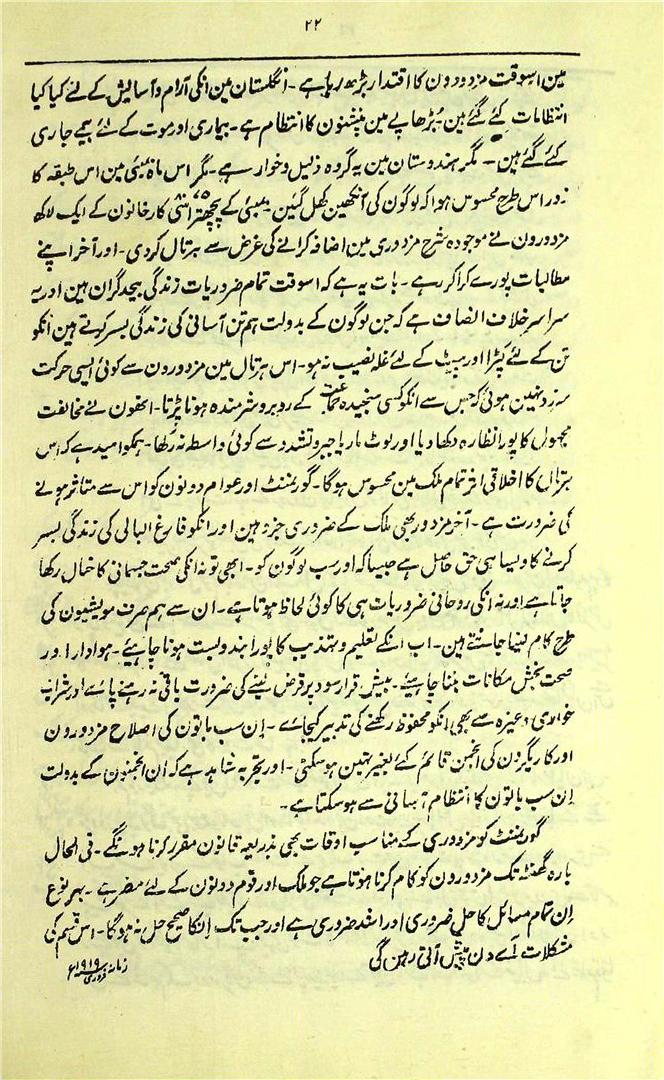 ۲۲
مین اسوقت مزدورون کا اقتدار بڑھ رہا ہے۔ انگلستان مین انکی آرام و آسایش کے لئے کیا کیا
انتظامات کئے گئے ہین۔ بڑھاپے مین پنشنون کا انتظام ہے۔ بیماری اور موت کے لئے بیمے جاری
کئے گئے ہین۔ مگر ہندوستان مین یہ گروہ ذلیل و خوار ہے۔ مگر اس ماہ بمبئی مین اس طبقہ کا
زور اس طرح محسوس ہوا کہ لوگون کی آنکھین کھل گئین۔ بمبئی کے پچھتر اسّی کارخانون کے ایک لاکھ
مزدورون نے موجودہ شرح مزدوری مین اضافہ کرانے کی غرض سے ہرتال کردی۔ اور آخر اپنے
مطالبات پورے کراکر رہے۔ بات یہ ہے کہ اسوقت تمام ضروریات زندگی بیحد گران ہین اور یہ
سراسر خلاف انصاف ہے کہ جن لوگون کے بدولت ہم تن آسانی کی زندگی بسر کرتے ہین انکو
تن کے لئے کپڑا اور پیٹ کے لئے غلہ نصیب نہ ہو۔ اس ہرتال مین مزدورون سے کوئی ایسی حرکت
سرزد نہین ہوئی کہ جس سے انکو کسی سنجیدہ جماعت کے روبرو شرمندہ ہونا پڑتا۔ انھون نے مخالفت
مجہول کا پورا نظارہ دکھا دیا اور لوٹ مار یا جبر و تشدد سے کوئی واسطہ نہ رکھا۔ ہمکو امید ہے کہ اس
ہرتال کا اخلاقی اثر تمام ملک مین محسوس ہوگا۔ گورنمنٹ اور عوام دونون کو اس سے متاثر ہونے
کی ضرورت ہے۔ آخر مزدور بھی ملک کے ضروری جزو ہین اور انکو فارغ البالی کی زندگی بسر
کرنے کا ویسا ہی حق حاصل ہے جیسا کہ اور سب لوگون کو۔ ابھی تو نہ انکی صحت جسمانی کا خیال رکھا
جاتا ہے اور نہ انکی روحانی ضروریات ہی کا کوئی لحاظ ہوتا ہے۔ ان سے ہم صرف مویشیون کی
طرح کام لینا جانتے ہین۔ اب انکے تعلیم و تہذیب کا پورا بندوبست ہونا چاہیئے۔ ہوادار اور
صحت بخش مکانات بننا چاہیئے۔ بیش قرار سود پر قرض لینے کی ضرورت باقی نہ رہنے پائے اور شراب
خواری وغیرہ سے بھی انکو محفوظ رکھنے کی تدبیر کیجائے۔ ان سب باتون کی اصلاح مزدورون
اور کاریگرون کی انجمن قائم کئے بغیر نہین ہوسکتی۔ اور تجربہ شاہد ہے کہ ان انجمنون کے بدولت
ان سب باتون کا انتظام آسانی سے ہوسکتا ہے۔
گورنمنٹ کو مزدوری کے مناسب اوقات بھی بذریعہ قانون مقرر کرنا ہونگے۔ فی الحال
بارہ گھنٹہ تک مزدورون کو کام کرنا ہوتا ہے جو ملک اور قوم دونون کے لئے مضر ہے۔ بہر نوع
ان تمام مسائل کا حل ضروری اور اشد ضروری ہے اور جب تک انکا صحیح حل نہ ہوگا۔ اس قسم کی
مشکلات آے دن پیش آتی رہین گی
زمانہ فروری ۱۹۱۹ء